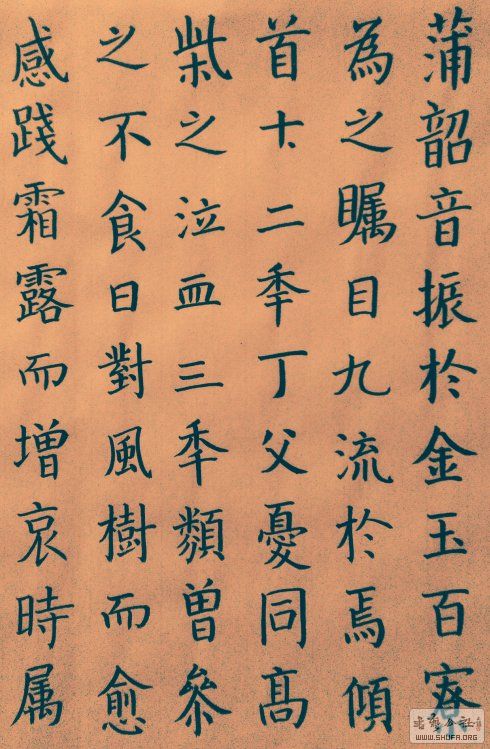 蒲韶音振於金玉百家
為之矚目九流於焉傾
首十二秊丁父憂同髙
柴之泣血三秊類曾叅
之不食日對風樹而愈
感踐霜露而增哀時属
WWW.SHUFA.ORG